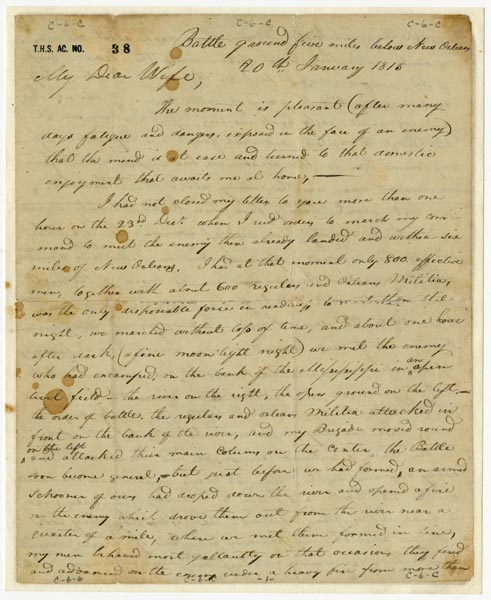 C-6-C C-6-C C-6-C
T.H.S. AC. NO. 38
Battle ground five miles below New Orleans
20th January 1815
My Dear Wife,
The moment is pleasant (after many
days fatigue and danger, exposed in the face of an enemy)
that the mind is at ease and turned to that domestic
enjoyment that awaits me at home, —
I had not closed my letter to you more than one
hour on the 23rd. Decr. when I recd orders to march my com
mand to meet the enemy then already landed and within six
miles of New Orleans. I had at that moment only 800 effective
men, together with about 600 regulars and Orleans Militia,
was the only disposable forces in readiness to withstand that
night, we marched without loss of time, and about one hour
after dark, (a fine moon light night) we met the enemy
who had encamped, on the bank of the Mississippi in an open
level field — the river on the right, the open ground on the left, —
the order of battle, the regulars and orleans Militia attacked in
front on the bank of the river, and my Brigade moved round
on the left
and attacked their main Column on the Center, the Battle
soon become general, — but just before we had formed, an armed
Schooner of ours had droped down the river and opened a fire
on the enemy which drove them out from the river near a
quarter of a mile, where we met them formed in line,
my men behaved most gallantly on that occasion, they fired
and advanced on the enemy under a heavy fire from more than
C-6-C C-6-C -1- C-6-C